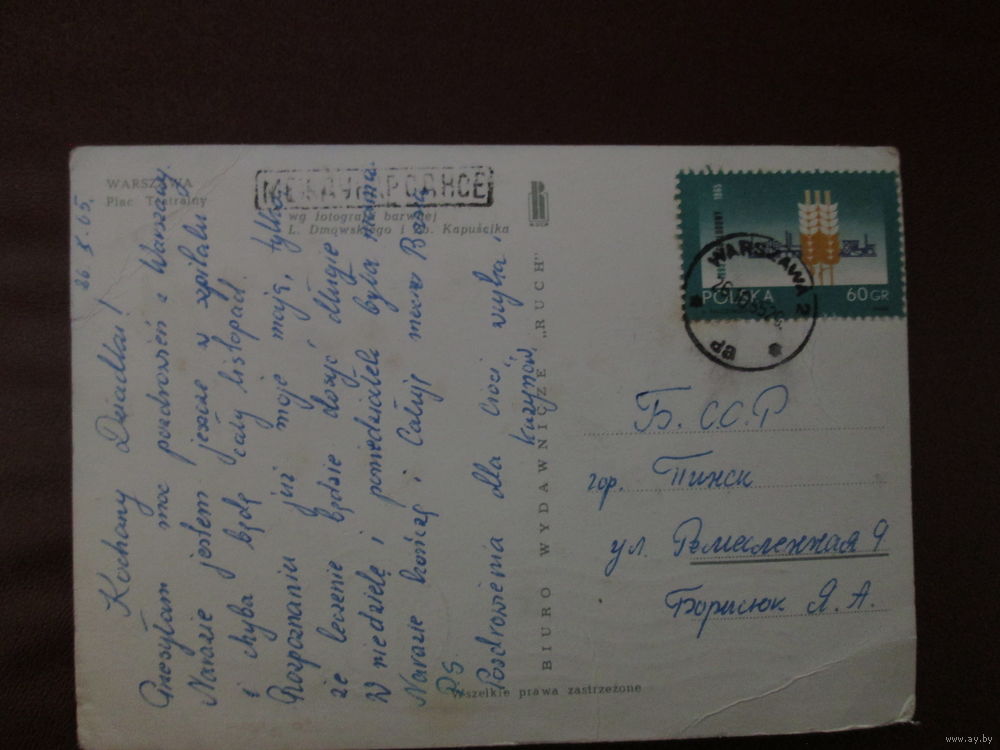 WARSZAWA
Plac Teatralny
wg fotografii barwnej
L. Dmowskiego i Kapuścika
26.X.65.
Kochany Dziadku!
Przesyłam moc pozdrowień z Warszawy
Narazie jestem jeszcze w szpitalu
i chyba będę cały listopad.
Rozpoznaniu już moje mają, tylko
że leczenie będzie dosyć długie
W niedzielę i poniedziałek była mama.
Narazie kończę i Całuję mocno
P.S.
Pozdrowienia dla cioci, wujka, i
kuzynów.
Wszelkie prawa zastrzeżone
BIURO WYDAWNICZE „RUCH"
POLSKA
60 GR
1965
WARSZAWA 2
Б.С.С.Р
гор. Пинск
ул. Ремесленная 9
Борисюк Я. А.
www.ay.by